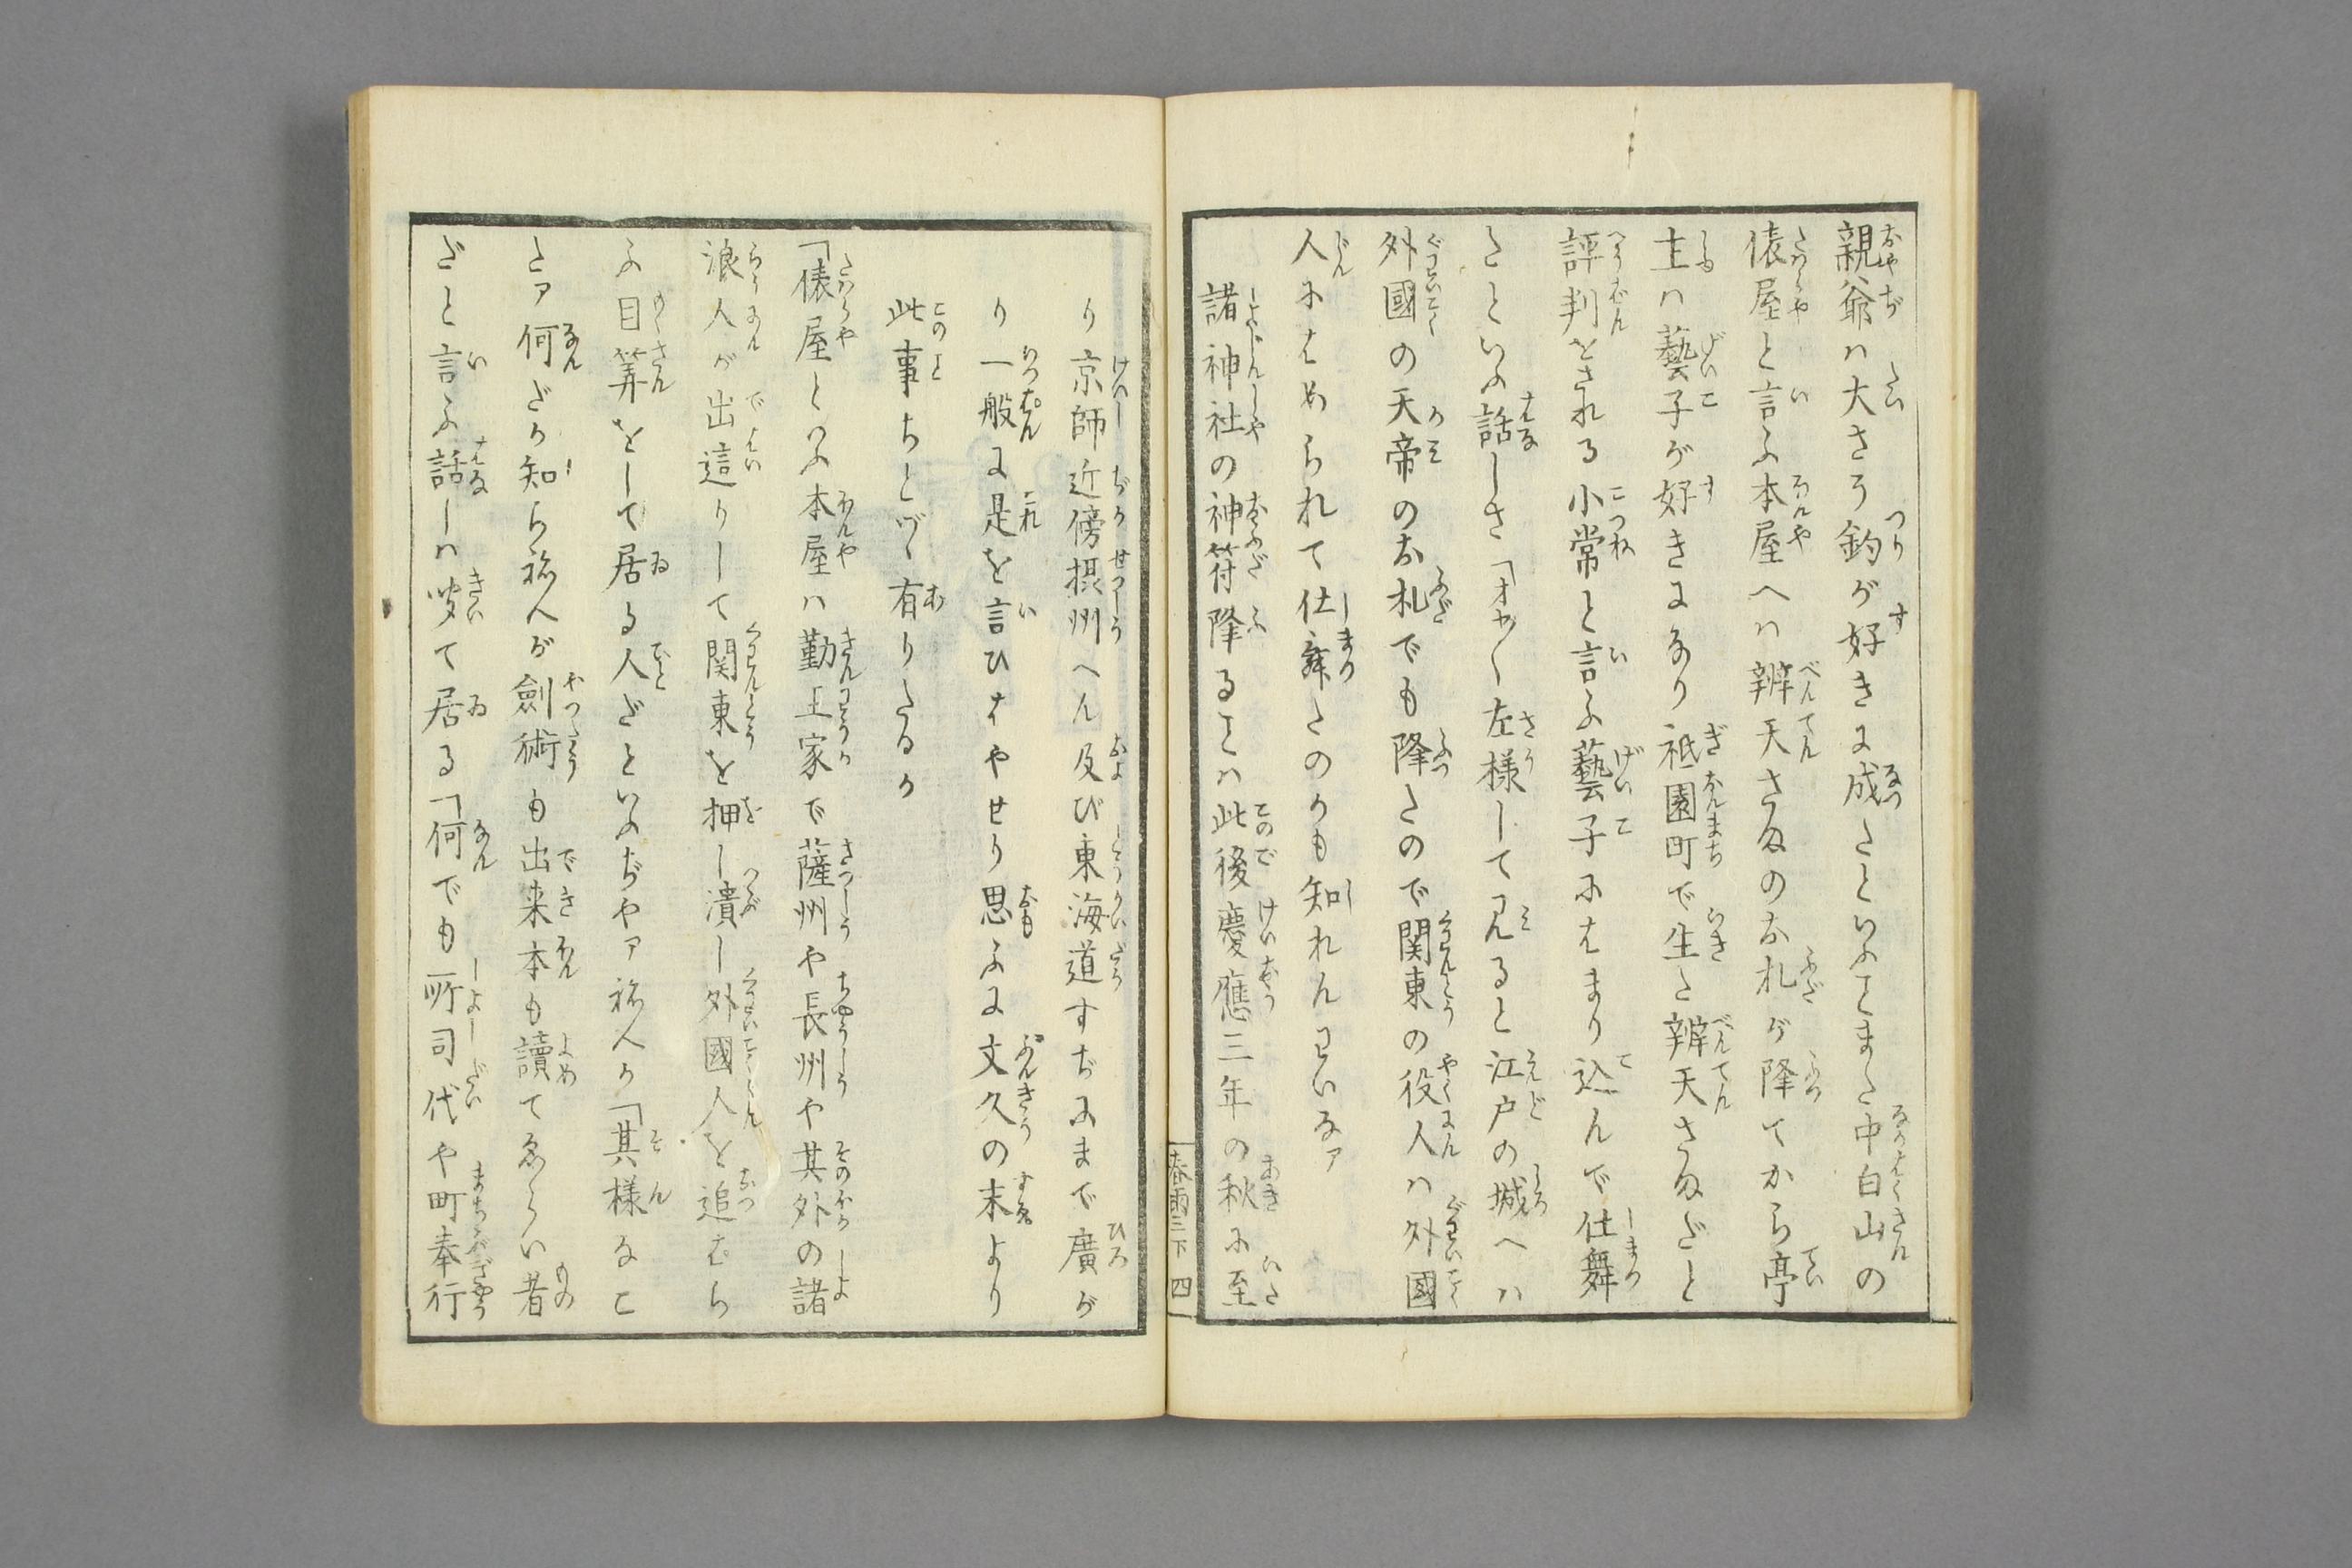 親爺ハ大さう釣が好きに成たといふヿまた中白山の
俵屋と言ふ本屋へハ辨天さまのお札が降てから亭
主ハ藝子が好きになり祇園町で生た辨天さまだと
評判をされる小常と言ふ藝子にはまり込んで仕舞
たといふ話しさ「オヤ〳〵左様して見ると江戸の城へハ
外國の天帝のお札でも降たので関東の役人ハ外國
人にはめられて仕舞たのかも知れんわいなァ
諸神社の神符降るヿハ此後慶應三年の秋に至
り京師近傍摂州へん及び東海道すぢにまで廣が
り一般に是を言ひはやせり思ふに文久の末より
此事ちとヅヽ有りたるか
「俵屋とのふ本屋ハ勤王家で薩州や長州や其外の諸
浪人が出這りして関東を押し潰し外國人を追はら
ふ目筭をして居る人だといふぢやァ祢へか「其様なこ
たァ何だか知ら祢へが劍術も出来本も讀てゑらい者
だと言ふ話しハ聞て居る「何でも所司代や町奉行
春雨三下 四